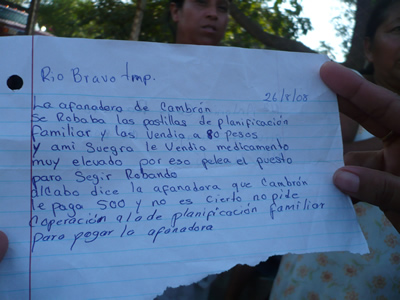 Rio Bravo tmp.
26/8/08
La afanadora de Cambrón
se Robaba las pastillas de planificación
familiar y las Vendia a 80 pesos
y ami Suegra le Vendio medicamento
muy elevado por eso pelea el puesto
para Segir Robando
alcabo dice la afanadora que Cambrón
le paga 500 y no es Cierto no pide
Coperación ala de planificación familiar
para pagar la afanadora